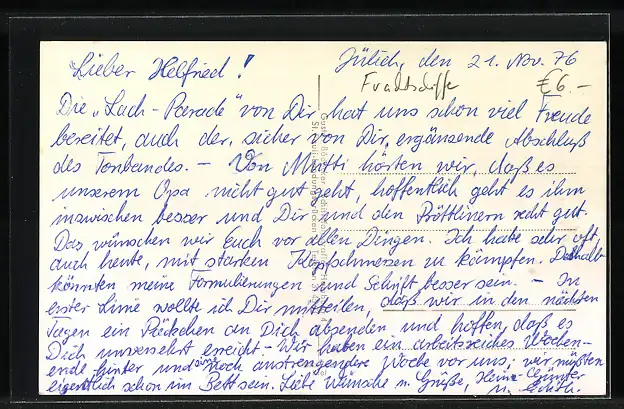 Lieber Helfried! Jülich, den 21. Nov. 76
Frachtschiffe €6.-
Die „Lach-Parade" von Dir hat uns schon viel Freude
bereitet, auch der, sicher von Dir, ergänzende Abschluß
des Tonbandes. - Von Mutti hörten wir, daß es
unserem Opa nicht gut geht, hoffentlich geht es ihm
inzwischen besser und Dir und den Pröttlinern recht gut.
Das wünschen wir Euch vor allen Dingen. Ich hatte sehr oft,
auch heute, mit starken Kopfschmerzen zu kämpfen. Deshalb
könnten meine Formulierungen und Schrift besser sein. - In
erster Linie wollte ich Dir mitteilen, daß wir in den nächsten
Tagen ein Päckchen an Dich absenden und hoffen, daß es
Dich unversehrt erreicht. - Wir haben ein arbeitsreiches Wochen-
ende hinter und eine noch anstrengendere Woche vor uns; wir müßten
eigentlich schon im Bett sein. Liebe Wünsche u. Grüße, Heinz-Günter
u.